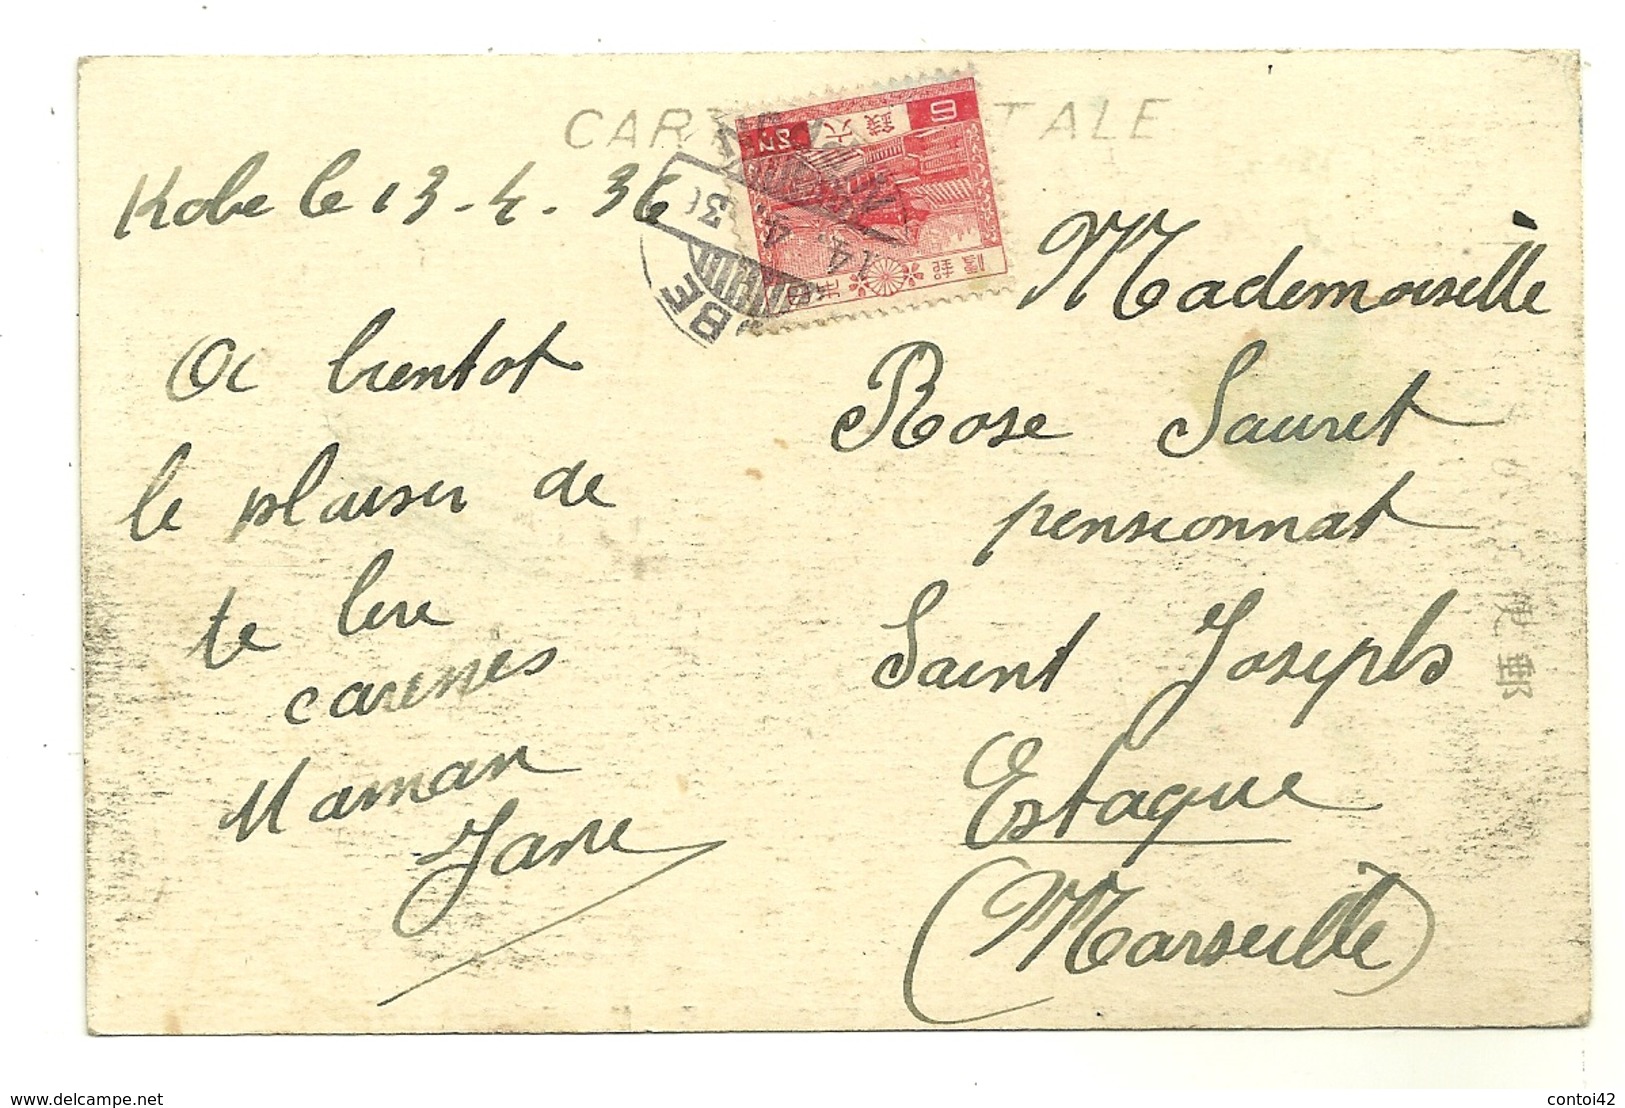 CAR TALE
Kobe le 13-4.36
A bientot
le plaisir de
te lire
caresses
Maman
Jane
Mademoiselle
Rose Sauret
pensionnat
Saint Joseph
Estaque
(Marseille)
六銭
6
BE
14. 4. 3
便郵
www.delcampe.net
contoi42